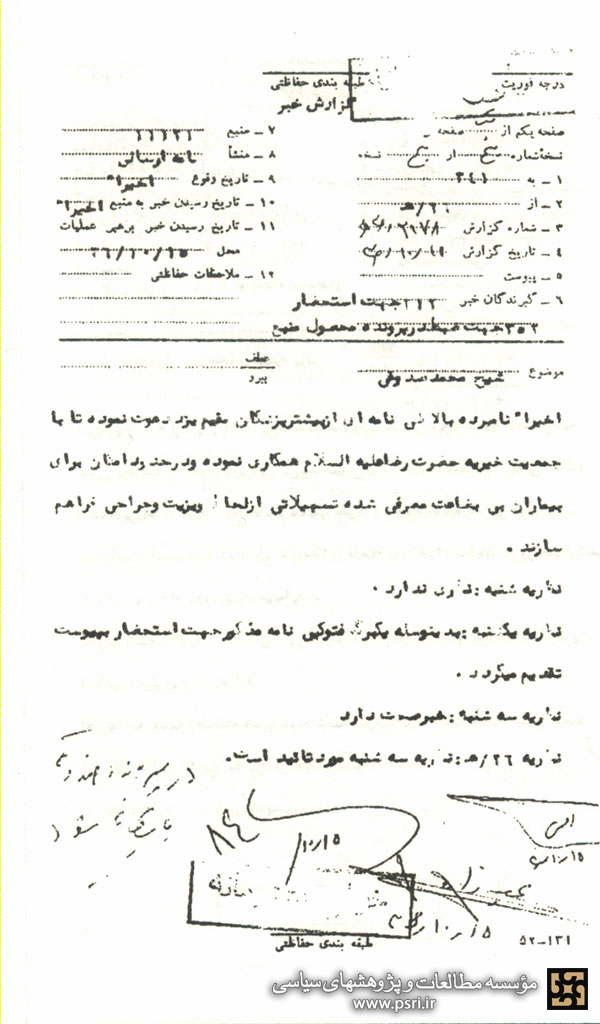 درجه فوریت
طبقه بندی حفاظتی
گزارش خبر
صفحه یکم از صفحه
نسخه شماره از نسخه
۱ ـ به ۳۴۱
۲ ـ از ۲۶/هـ
۳ ـ شماره گزارش
۴ ـ تاریخ گزارش
۵ ـ پیوست
۶ ـ گیرندگان خبر ۳۱۲ جهت استحضار
۳۵۲ جهت ضبط در پرونده محصول منبع
۷ ـ منبع
۸ ـ منشأ نامه ارسالی
۹ ـ تاریخ وقوع اخیراً
۱۰ ـ تاریخ رسیدن خبر به منبع اخیراً
۱۱ ـ تاریخ رسیدن خبر برهبر عملیات
محل
۱۲ ـ ملاحظات حفاظتی
موضوع شیخ محمد صدوقی
عطف
پیرو
اخیراً نامبرده بالا طی نامه ای از بیشتر پزشکان مقیم یزد دعوت نموده تا با
جمعیت خیریه حضرت رضا علیه السلام همکاری نموده و در حدود امکان برای
بیماران بی بضاعت معرفی شده تسهیلاتی از لحاظ ویزیت و جراحی فراهم
سازند .
نظریه شنبه : نظری ندارد .
نظریه یکشنبه : بدینوسیله یکبرگ فتوکپی نامه مذکور جهت استحضار بپیوست
تقدیم میگردد .
نظریه سه شنبه : خبر صحت دارد
نظریه ۲۶/هـ : نظریه سه شنبه مورد تائید است.
طبقه بندی حفاظتی
۵۲-۱۳۱
مؤسسه مطالعات و پژوهشهای سیاسی
www.psri.ir